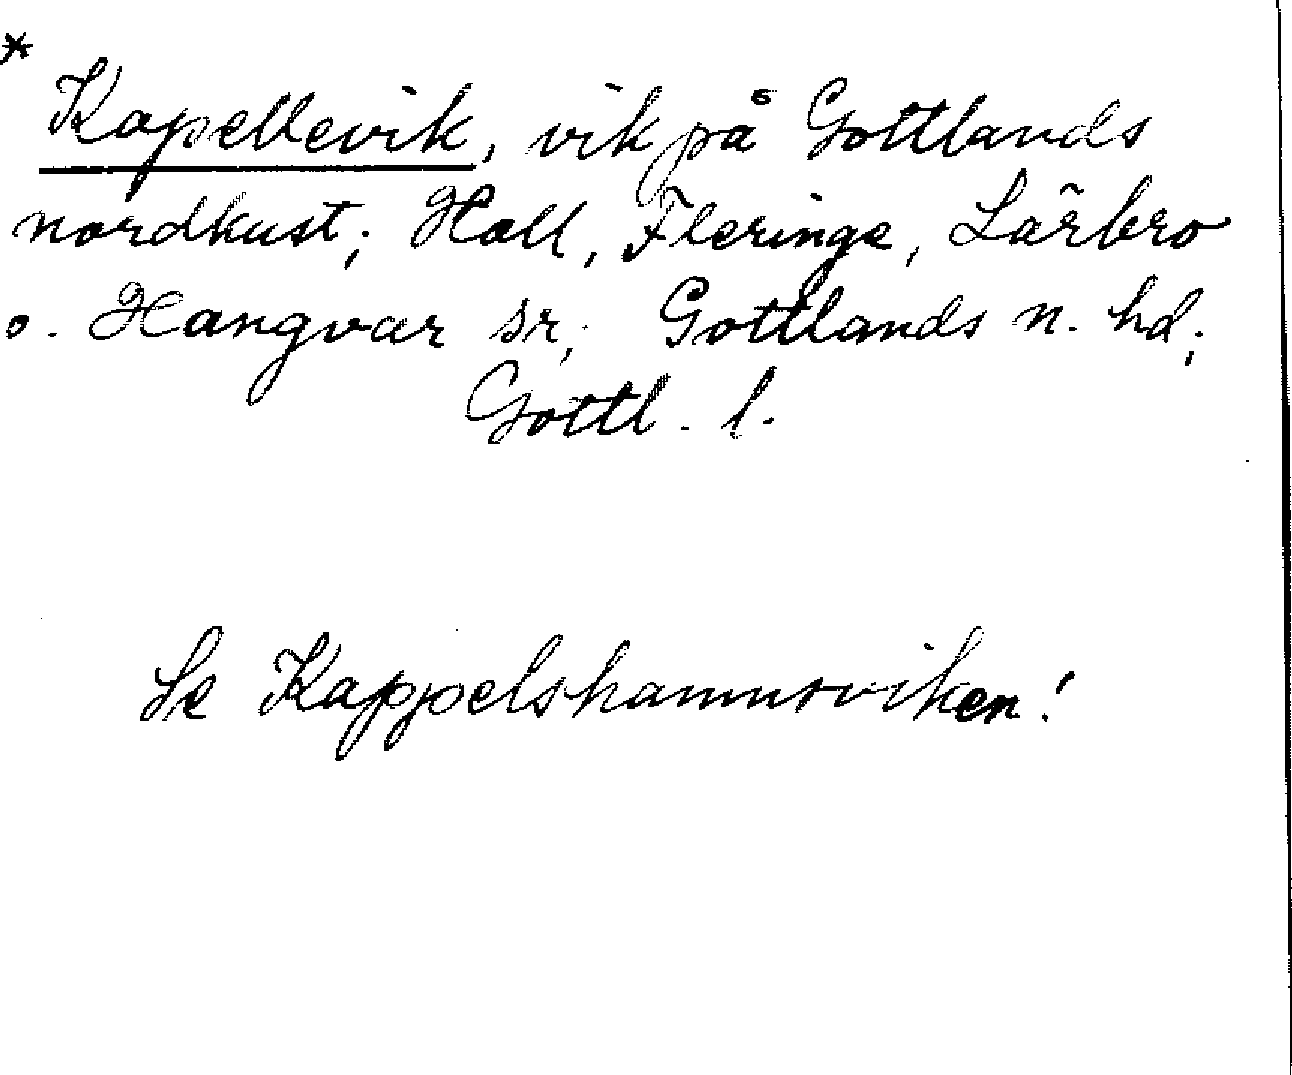 *
Kapellevik, vik på Gottlands
nordkust; Hall, Fleringe, Lärbro
o. Hangvar sr; Gottlands n. hd;
Gottl. l.
Se Kappelshamnsviken!